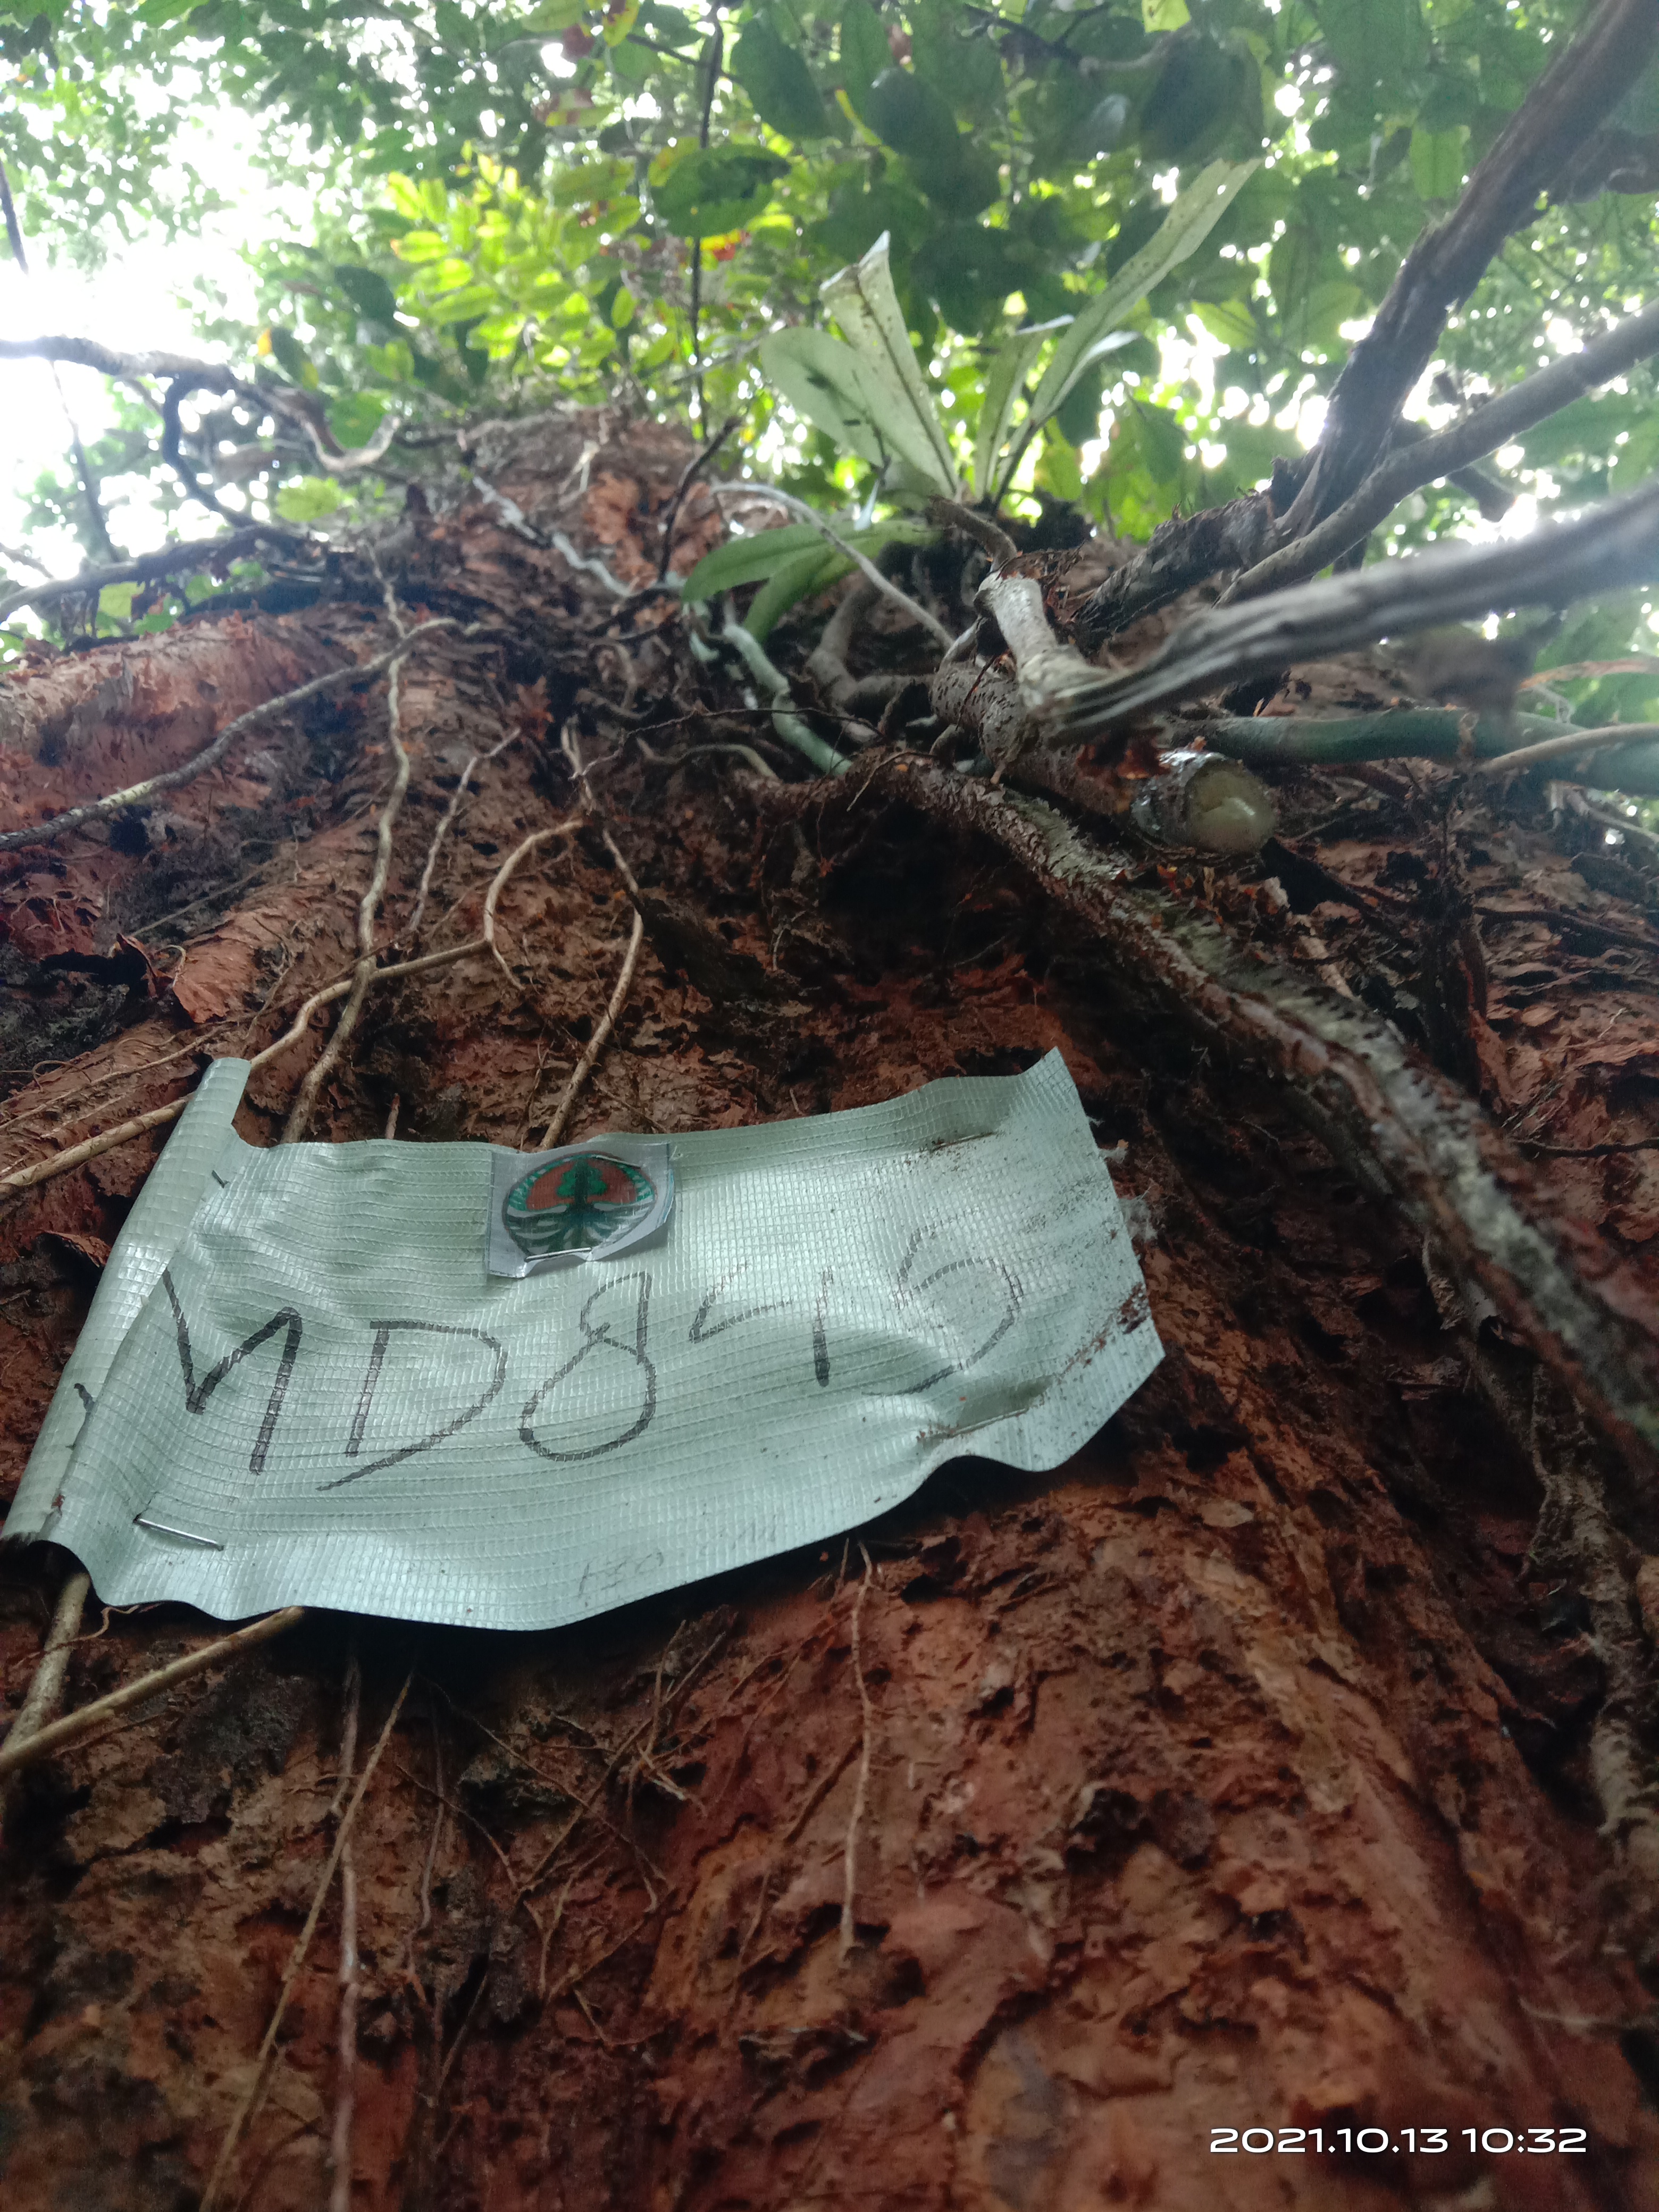 MD845
2021.10.13 10:32